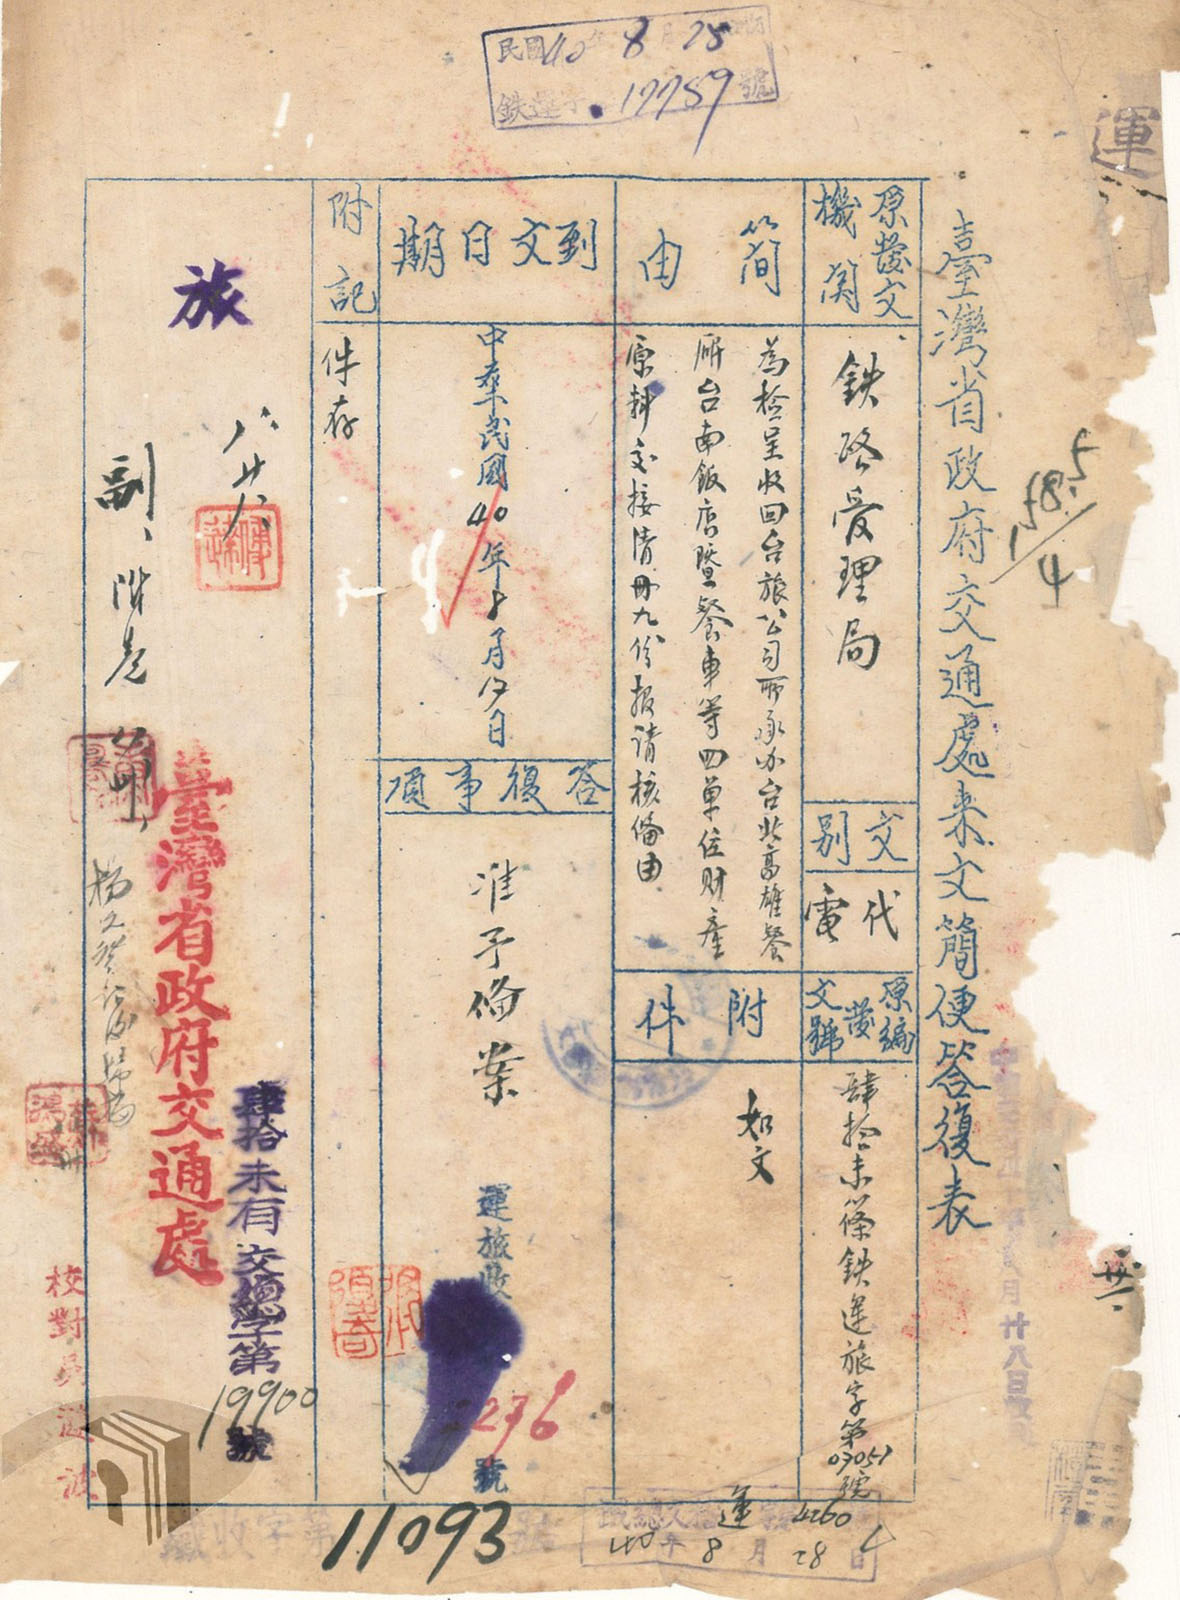 民國40年8月25
鉄運字 17759號
運
臺灣省政府交通處来文簡便答復表
原發文機関
鉄路管理局
文別
代電
原編發文號
肆拾未篠鉄運旅字第07051號
簡由
為檢呈收回台旅公司所承办台北高雄餐
廳台南飯店暨餐車等四單位財產
原料交接清冊九份报請核俻由
附件
如文
到文日期
中華民國40年8月17日
答復事項
准予俻案
運旅收
276
號
附記
件存
旅
八廿八
副、
臺灣省政府交通處
肆拾未有交總字第
19900
號
校對吳
11093
鐵收字第
號
40年8月28日
運
4260
廿八日